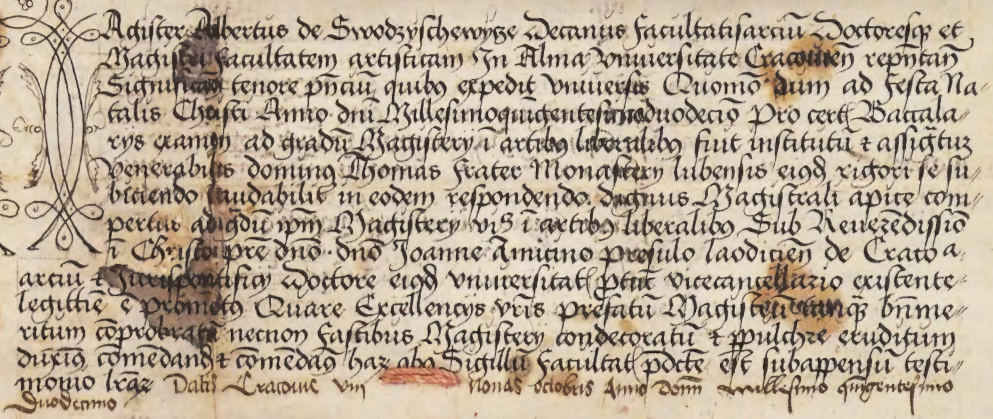 Magister Albertus de Swodzyschewycze Decanus facultatis arciū Doctoresq et
Magistri facultatem artisticam In Alma Vniuersitate Cracouien̄ rep̄ntan̄
Significam̄ tenore pn̄ciū quibus expedit vniuersis Quomō dum ad festa Na-
talis Christi Anno dn̄i Millesimoquīgentesimoduodecīo Pro certꝭ Baccala-
rys examen ad gradū Magistery ī artibꝰ liberalibꝰ fuit institutū ⁊ assigt̄uȝ
venerabilis dominus Thomas frater Monastery lubensis eiꝰd rigori se su-
biciendo laudabilit in eodem respondendo dignus Magistrali apice com-
pertus ad gdū ip̄m Magistery viȝ ī artibꝰ liberalibꝰ Sub Reuerēdissīo
ī Christo pr̄e dn̄o dn̄o Joanne Amicino Presulo laodicien̄ de Craco a
arciū ⁊ Juris pontificy Doctore eiꝰd vniuersitatꝭ ptūc vicecancellario existente
legittīe ē promotꝰ Quare Excellencys vr̄is prefatū Magistrū tamqꝫ bn̄me-
ritum cōprobatū necnon fascibus Magistery condecoratū ⁊ ꝑpulchre eruditum
duxīꝰ cōmedandū ⁊ cōmedam̄ haꝝ Sigillū facultatꝭ p̄dcte est subappensū testi-
monio lr̄aꝝ Datū Cracouie viii Nonas octobris Anno domī Millesimo quīgentesimo
duodecimo